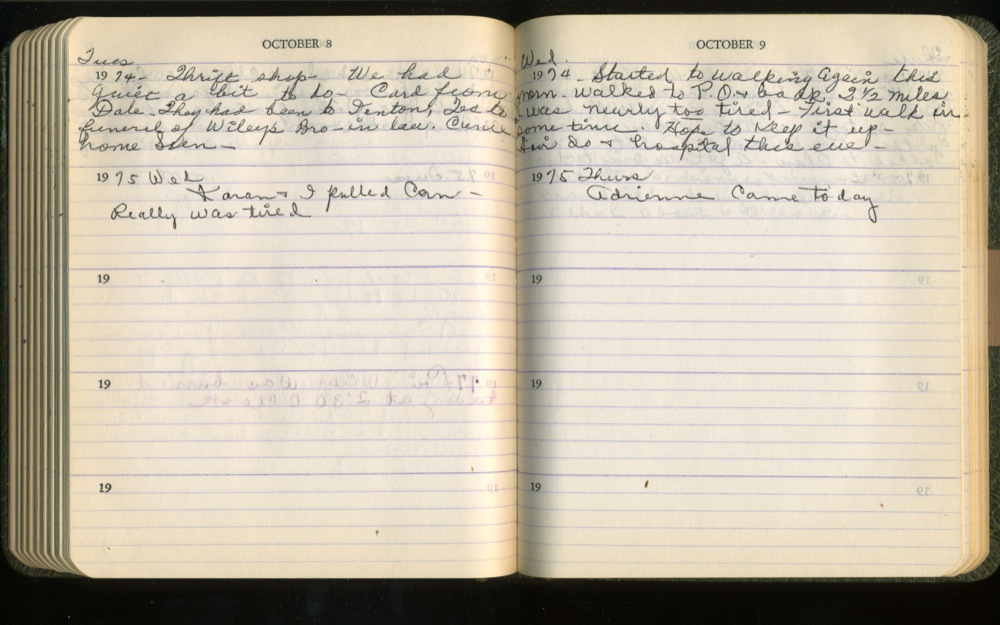 OCTOBER 8
Tues
1974- Thrift shop- We had
quite a bit to do- Card from
Dale. They had been to Denton, Tex to
funeral of Wileys Bro-in law. Curie
home soon-
1975 Wed
Karan & I pulled Corn-
Really was tired
19
19
19
OCTOBER 9
Wed.
1974- Started to walking again this
morn. Walked to P.O. & back 2 1/2 miles
I was nearly too tired- First walk in
some time. Hope to keep it up-
hospital this eve-
1975 Thurs
Adrienne Came today
19
19
19